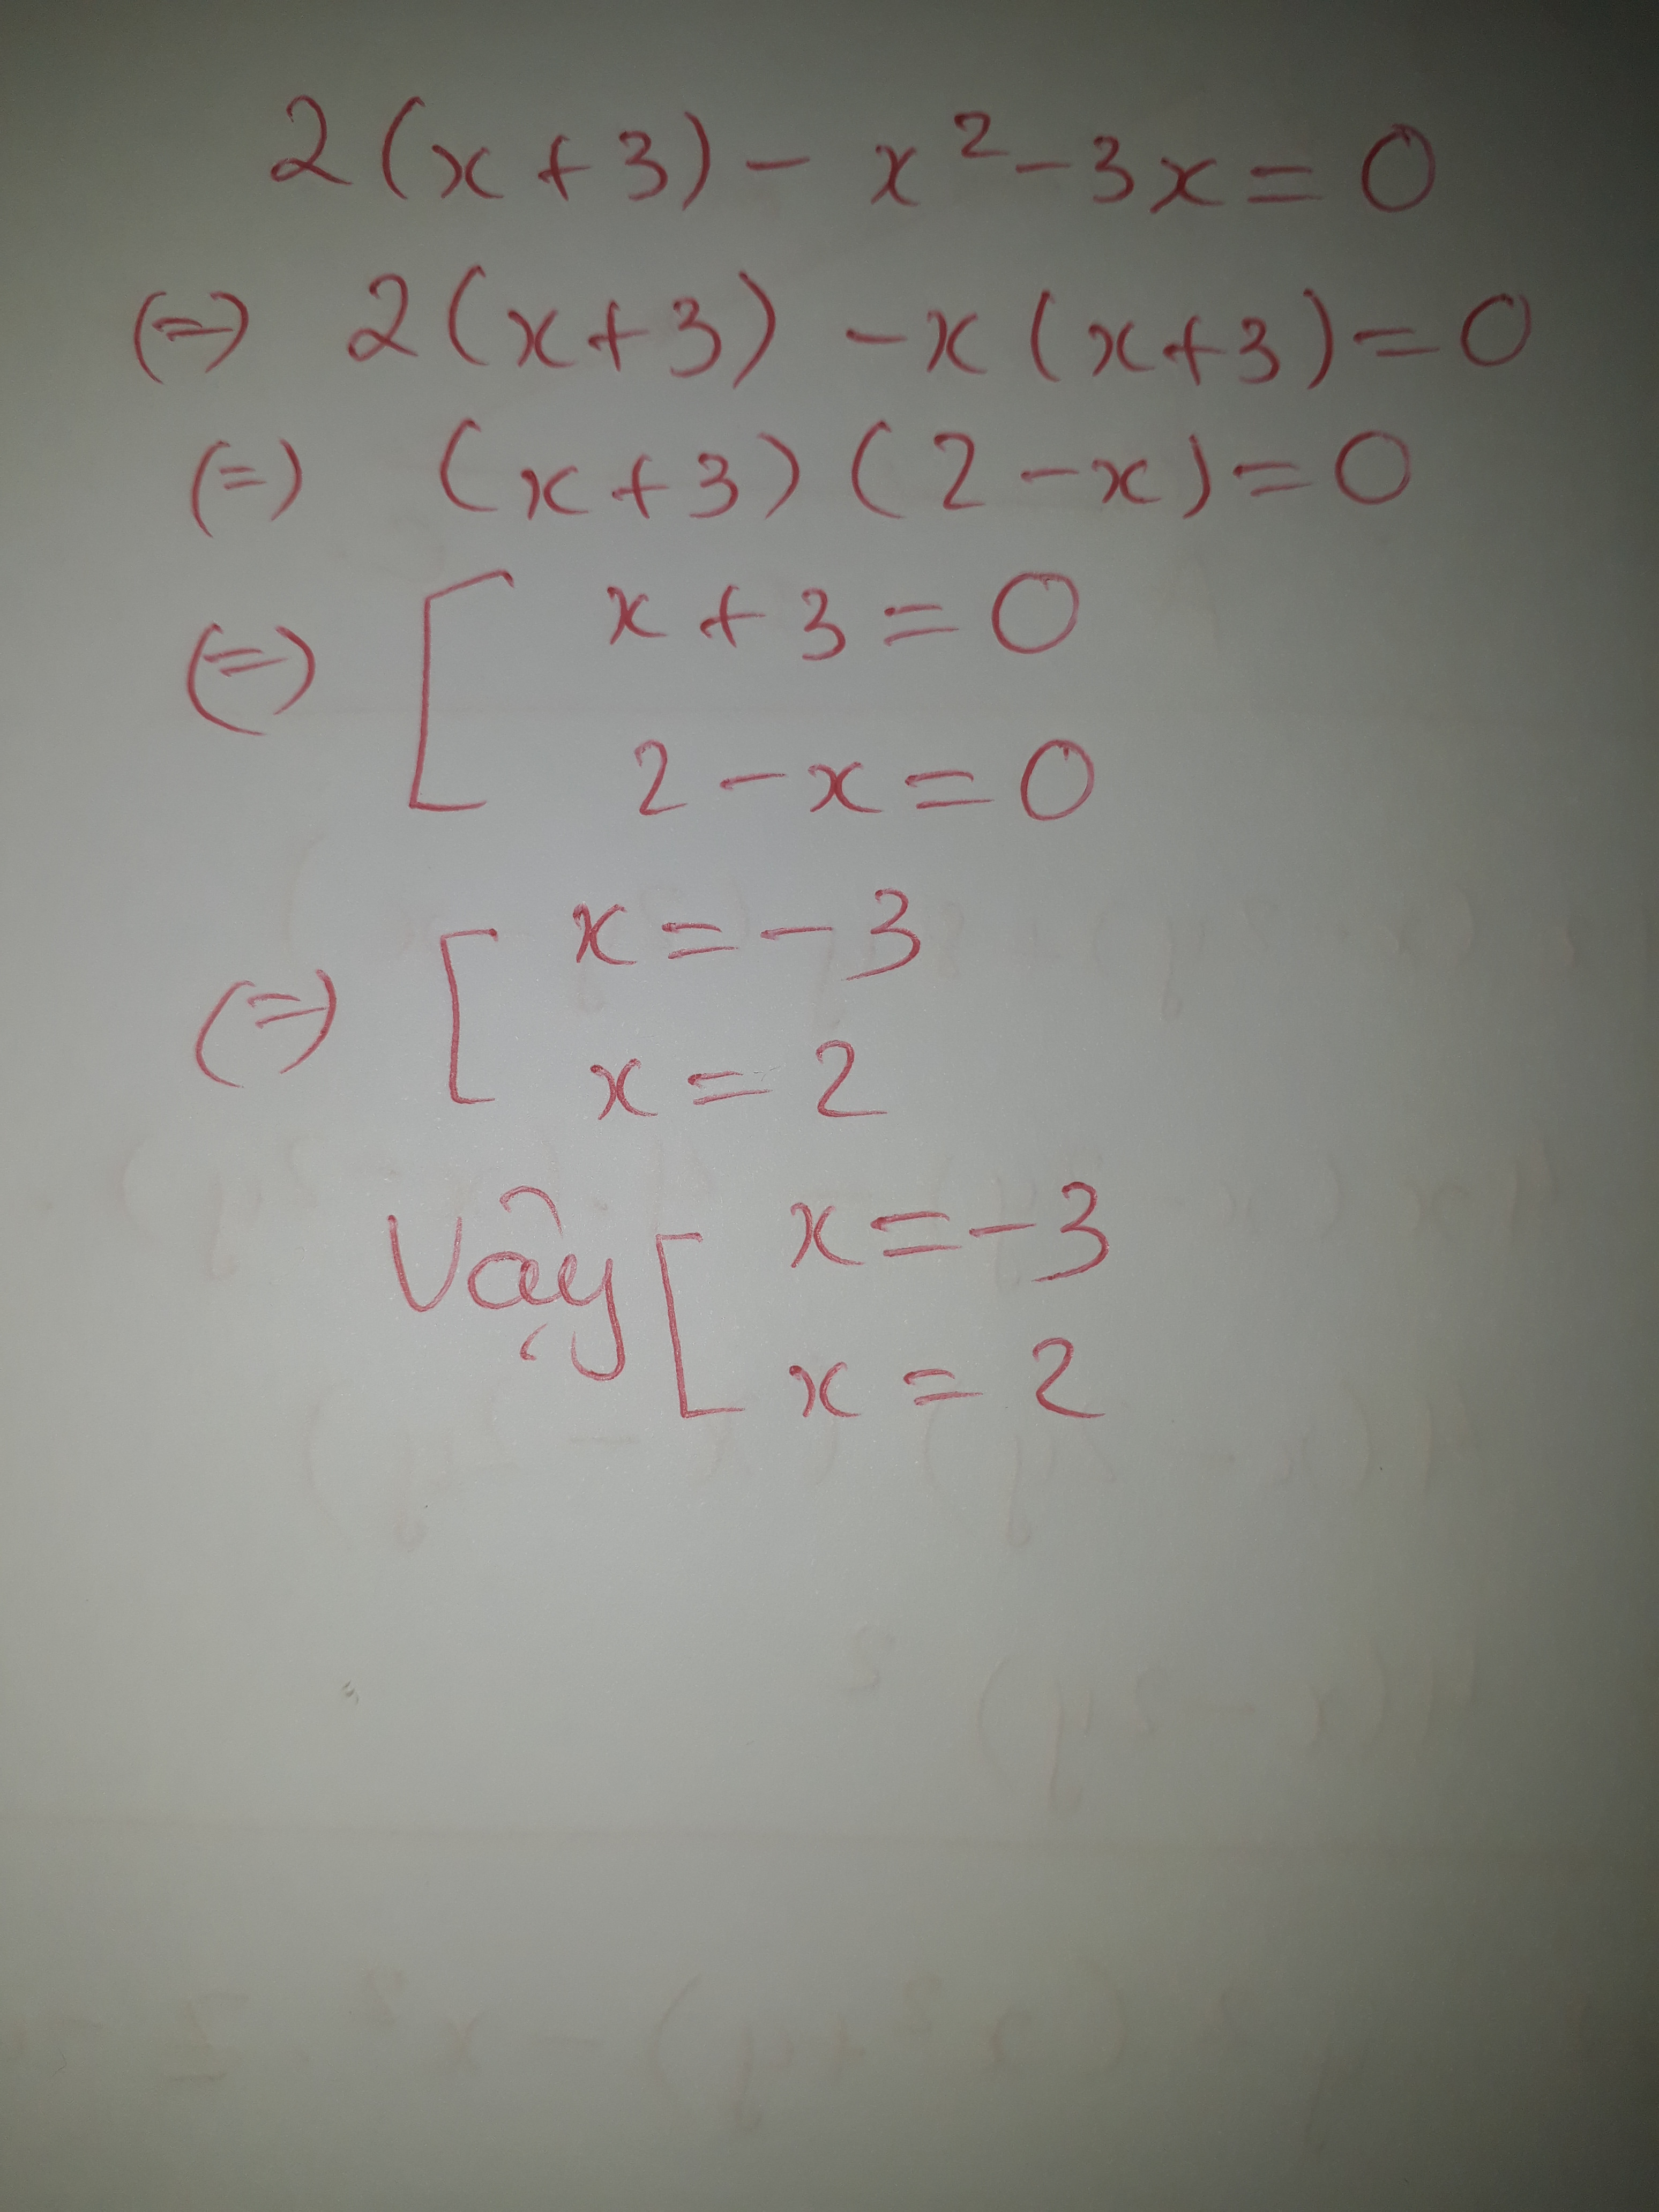 2(x+3) - x² - 3x = 0
(=) 2(x+3) - x(x+3) = 0
(=) (x+3)(2-x) = 0
(=) [ x+3 = 0
2-x = 0
(=) [ x = -3
x = 2
Vậy [ x = -3
x = 2